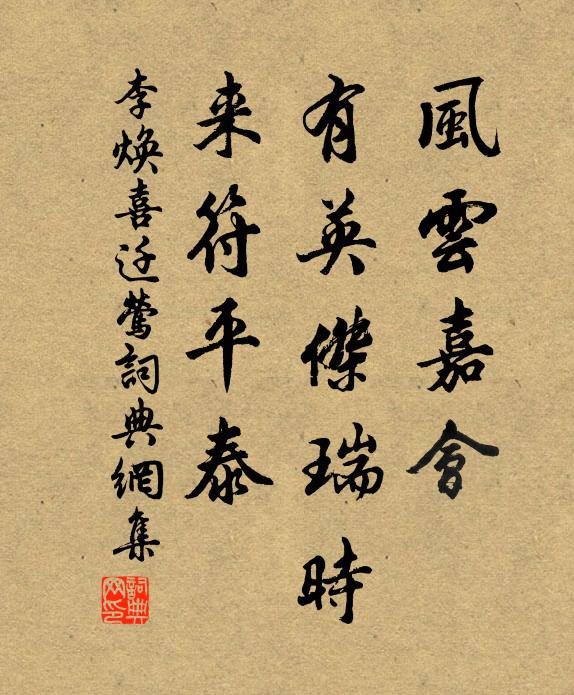 風雲嘉會
有英傑瑞時
来符平泰
李煥喜迁鶯詞典網集
詞典网印